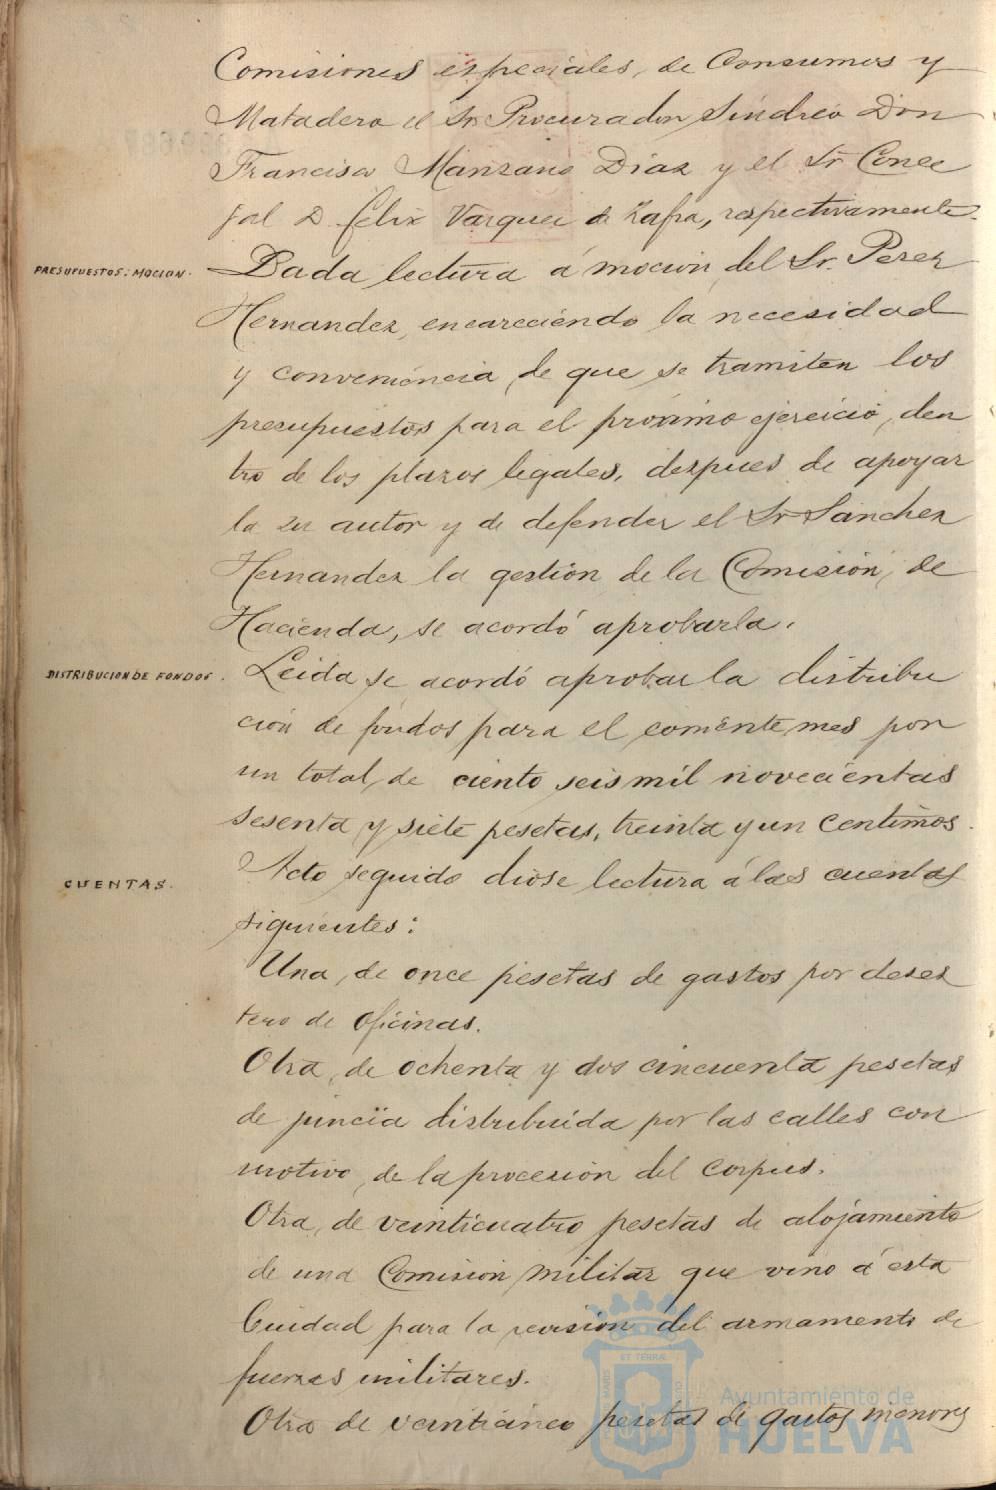 Comisiones especiales, de Consumos y
Matadero el Sr. Procurador Síndico Don
Francisco Manzano Díaz y el Sr Conce
jal D. Félix Vazquez de Zafra, respectivamente.
PRESUPUESTOS: MOCION.
Dada lectura á moción, del Sr. Perez
Hernandez, encareciendo la necesidad
y conveniencia, de que se tramiten los
presupuestos para el próximo ejercicio, den
tro de los plazos legales, despues de apoyar
la su autor y de defender el Sr Sánchez
Hernandez la gestión de la Comisión, de
Hacienda, se acordó aprobarla.
DISTRIBUCION DE FONDOS.
Leida se acordó aprobar la distribu
ción de fondos para el corriente mes por
un total, de ciento seis mil novecientas
sesenta y siete pesetas, treinta y un centimos.
CUENTAS.
Acto seguido diose lectura á las cuentas
siguientes:
Una, de once pesetas de gastos por
de oficinas.
Otra, de ochenta y dos cincuenta pesetas
de juncia distribuida por las calles con
motivo, de la procesión del Corpus.
Otra, de veinticuatro pesetas de alojamiento
de una Comision militar que vino á esta
Ciudad para la revisión del armamento de
fuerzas militares.
Otra de veinticinco pesetas de gastos menores
ET TERRAE
Ayuntamiento de
HUELVA